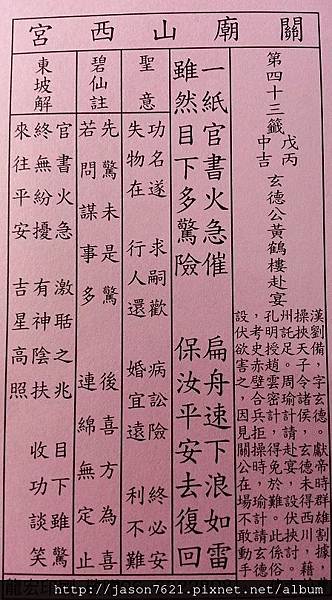 關廟山西宮
第四十三籤
戊丙
中吉
玄德公黃鶴樓赴宴
漢劉備，字玄德。獻帝時群雄割據，
操挾天子令諸侯，玄德未得西川，藉
州託足。周瑜計請赴宴，設伏挾討。
孔明授趙雲密計，得免於難。此係俗
，考史赤壁合兵拒操時，瑜計請玄德
設伏欲害之，因見關公在場不敢動手
一紙官書火急催 扁舟速下浪如雷
雖然目下多驚險 保汝平安去復回
聖意
功名遂 求嗣歡 病訟險 終必安
失物在 行人還 婚宜遠 利不難
碧仙註
先驚未是驚 後喜方為喜
若問謀事多 連綿無定止
東坡解
官書火急 激聒之兆 目下雖驚
終無紛擾 有神陰扶 收功談笑
來往平安 吉星高照
http://jason7621.pixnet.net/blog/